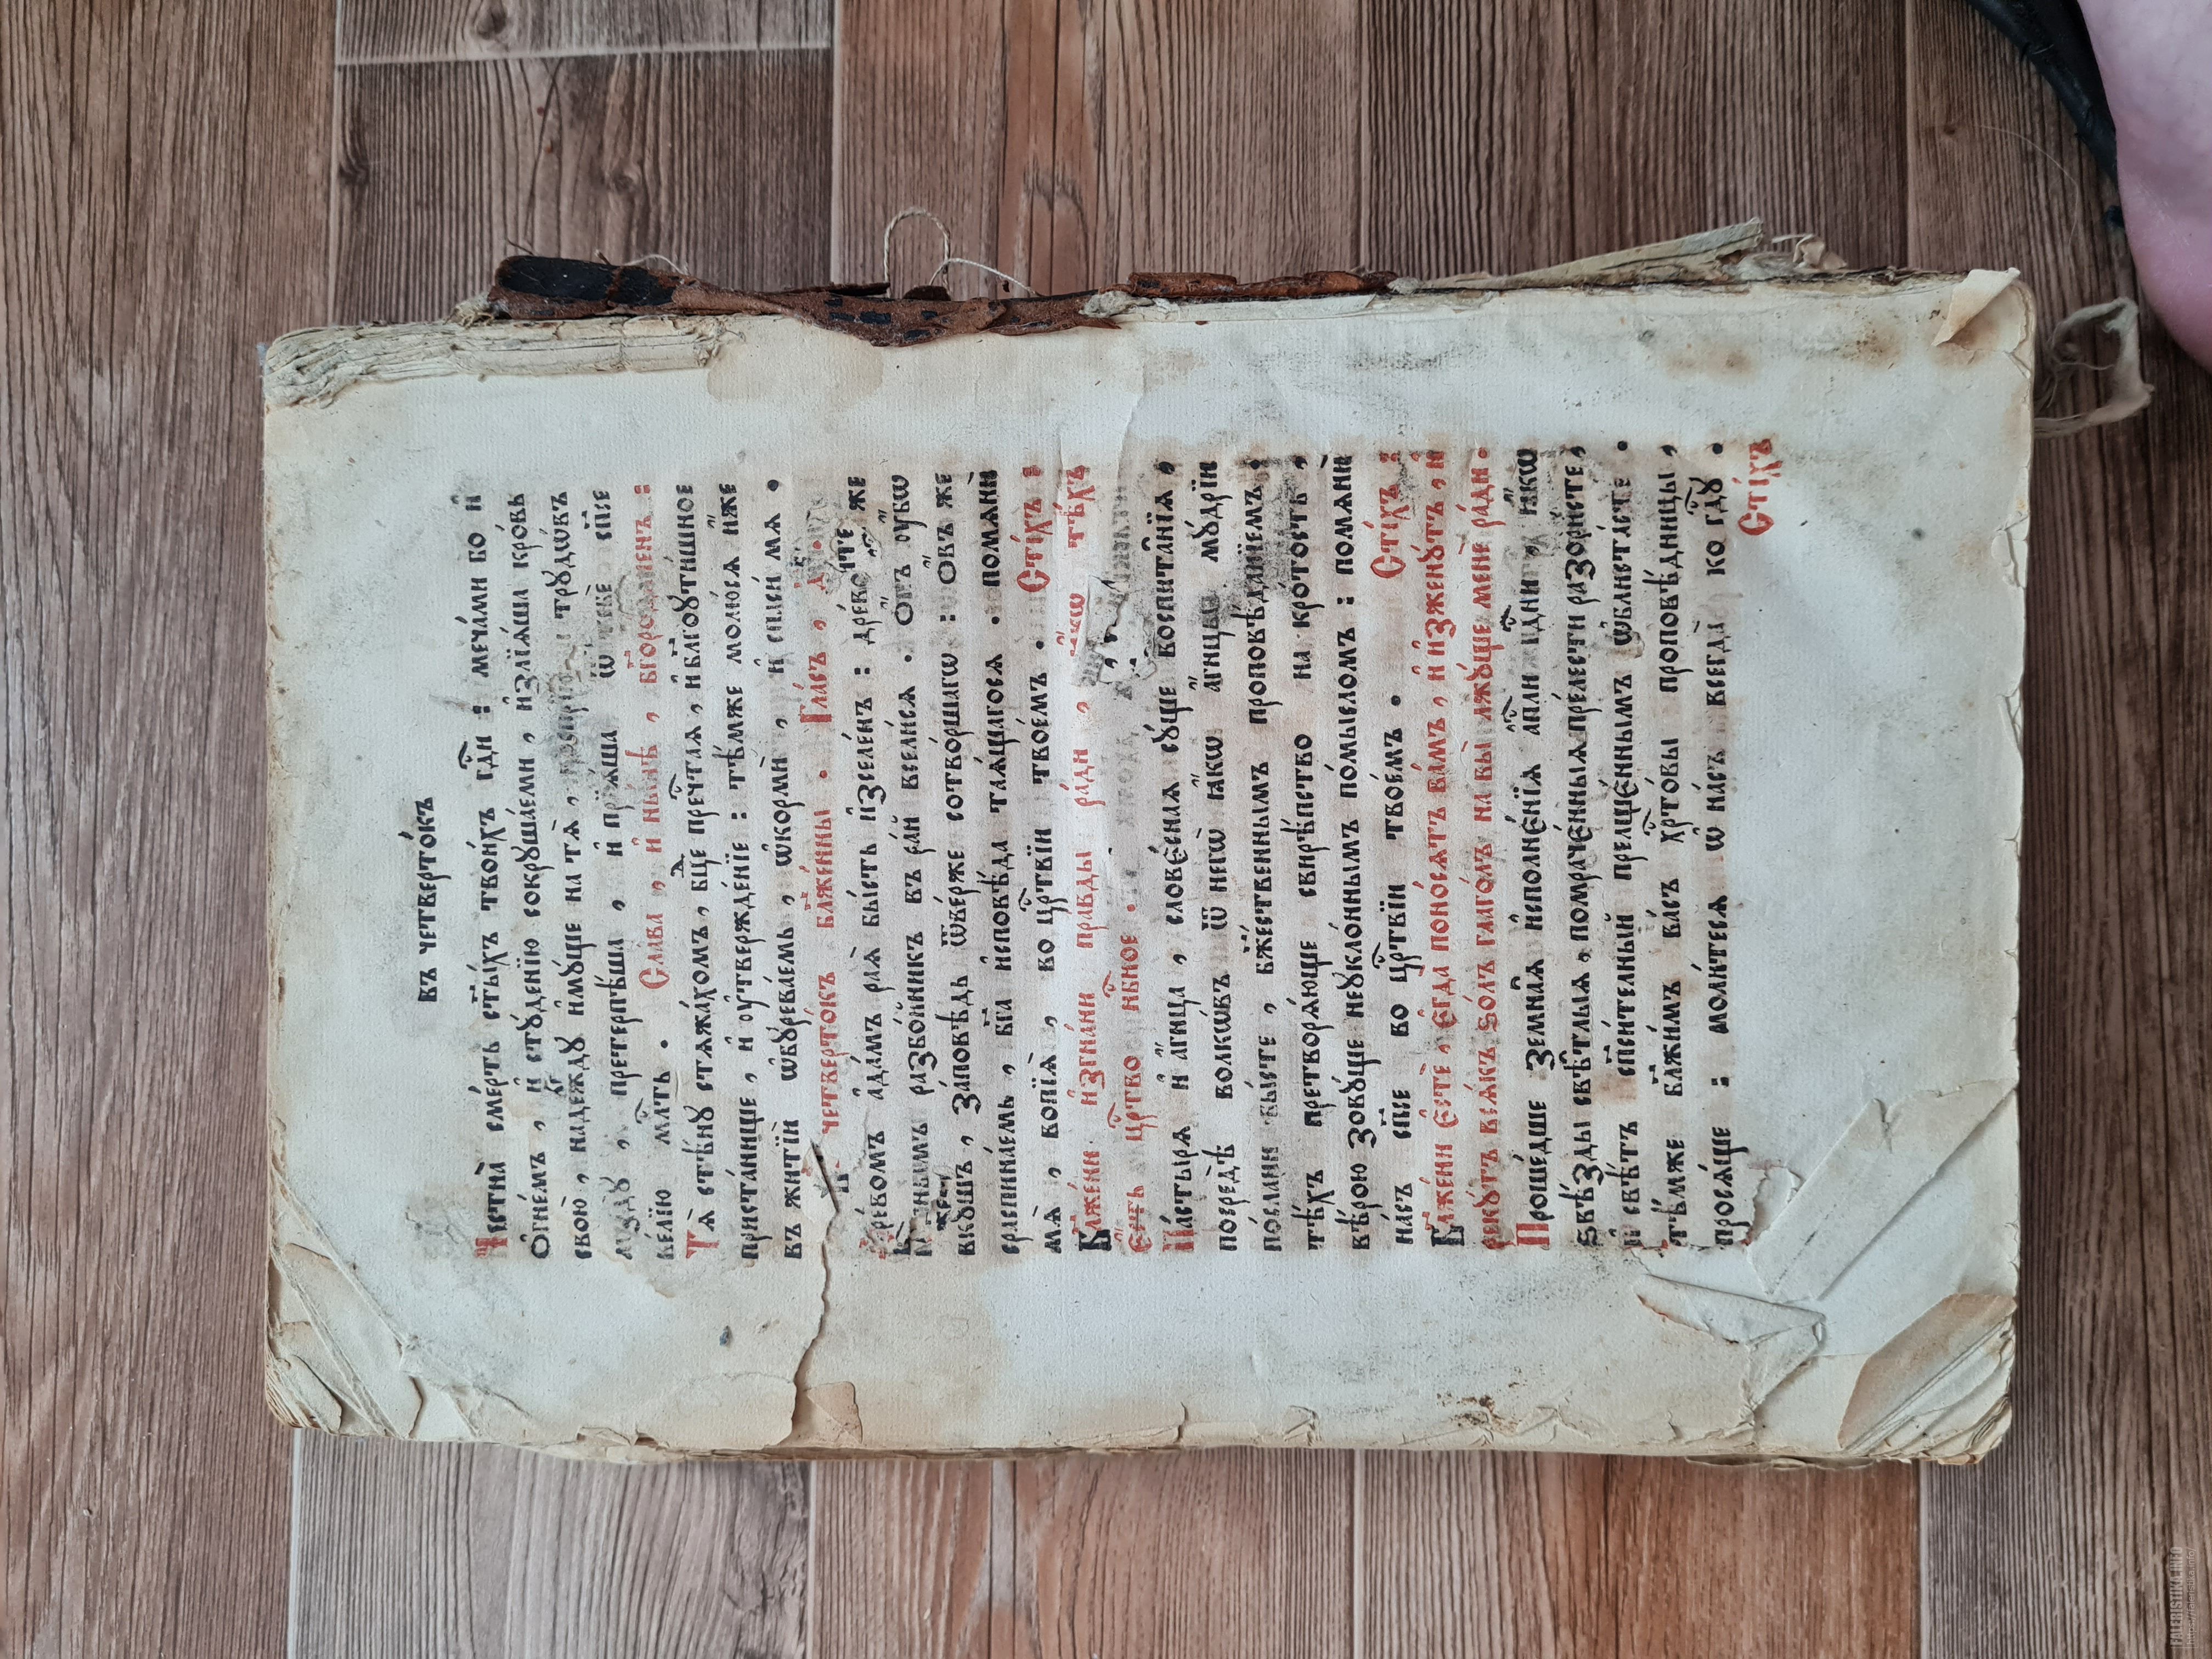 въ четверто́къ
Честна̀ сме́рть ст҃ы́хъ твои́хъ гдⷭ҇и : меча́ми бо и҆
Ѻ҆гне́мъ , и҆ стꙋ́денїю сокрꙋша́еми , и҆злїѧ́ша кро́вь
свою̀ , наде́ждꙋ и҆мꙋ́ще на тѧ̀ , трꙋдѡ́въ
мздꙋ̀ , претерпѣ́ша , и҆ прїѧ́ша ѿ тебє̀ сп҃се
ве́лїю млⷭ҇ть . Сла́ва , и҆ ны́нѣ , бг҃оро́диченъ :
Тѧ̀ стѣ́нꙋ стѧжа́хомъ , бц҃е пречⷭ҇таѧ , и҆ бл҃гоꙋти́шное
приста́нище , и҆ оу҆твержде́нїе : тѣ́мже молю́сѧ и҆́же
въ житїѝ ѡ҆бꙋрева́емь , ѡ҆кормѝ , и҆ сп҃си́ мѧ .
четверто́къ бл҃же́нны . Гла́съ , д҃ .
Дре́вомъ а҆да́мъ раѧ̀ бы́сть и҆зселе́нъ : дре́во же
кре́стнымъ разбо́йникъ въ ра́й всели́сѧ . Ѻ҆́въ оу҆́бѡ
вкꙋ́шъ , за́повѣдь ѿве́рже сотво́ршагѡ : Ѻ҆́въ же
сраспина́емь , бг҃а и҆сповѣ́да таѧ́щагосѧ . помѧнѝ
мѧ̀ , вопїѧ̀ , во црⷭ҇твїи твое́мъ . Сти́хъ :
Бл҃же́ни и҆згна́ни пра́вды ра́ди , ꙗ҆́кѡ тѣ́хъ
є҆́сть црⷭ҇тво нбⷭ҇ное .
Па́стырѧ и҆ а҆́гнца , слове́снаѧ сꙋ́ще воспита̑нїѧ ,
посредѣ̀ волкѡ́въ ѿ негѡ̀ ꙗ҆́кѡ а҆́гнцы мꙋ́дрїи
по́слани бы́сте , бж҃е́ственнымъ проповѣ́данїемъ :
тѣ́хъ претворѧ́юще свирѣ́пство на кро́тость ,
вѣ́рою зовꙋ́ще неꙋкло́ннымъ по́мысломъ : помѧнѝ
на́съ сп҃се во црⷭ҇твїи твое́мъ . Сти́хъ :
Бл҃же́ни є҆стѐ , є҆гда̀ поно́сѧтъ ва́мъ , и҆ и҆зженꙋ́тъ , и҆
рекꙋ́тъ всѧ́къ ѕо́лъ глаго́лъ на вы̀ лжꙋ́ще менѐ ра́ди .
Проше́дше земна̑ѧ и҆сполнє́нїѧ а҆пⷭ҇ли гдⷭ҇ни , ꙗ҆́кѡ
ѕвѣ́зды свѣ́тлыѧ , помраче́нныѧ пре́лести разори́сте ,
и҆ свѣ́тъ сп҃си́тельный прельще́ннымъ ѡ҆блиста́сте .
тѣ́мже бл҃жи́мъ ва́съ хрⷭ҇то́вы проповѣ́дницы ,
прося́ще : моли́тесѧ ѡ҆ на́съ всегда̀ ко гдⷭ҇ꙋ .
Сти́хъ
FALERISTIKA.INFO